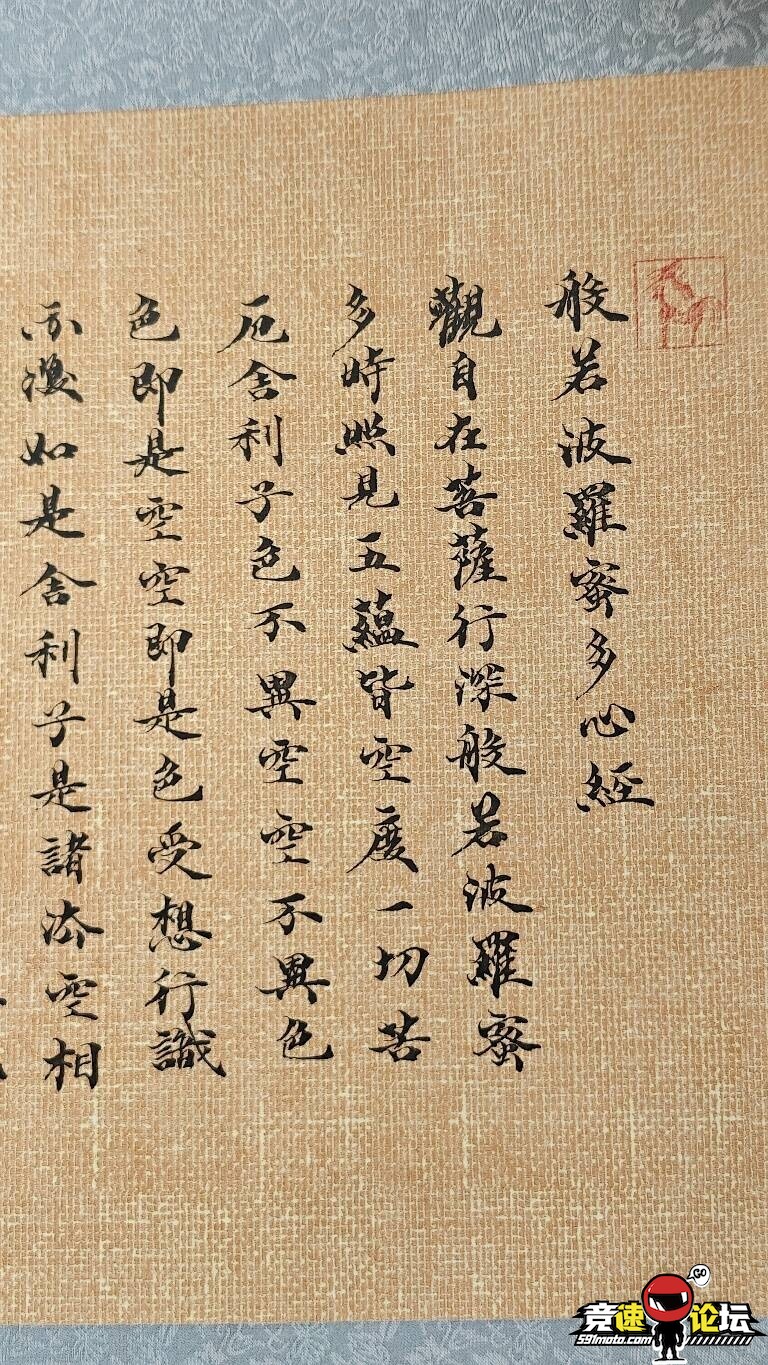 般若波羅蜜多心經
觀自在菩薩行深般若波羅蜜
多時照見五蘊皆空度一切苦
厄舍利子色不異空空不異色
色即是空空即是色受想行識
亦復如是舍利子是諸法空相
GO
竞速论坛
591moto.com